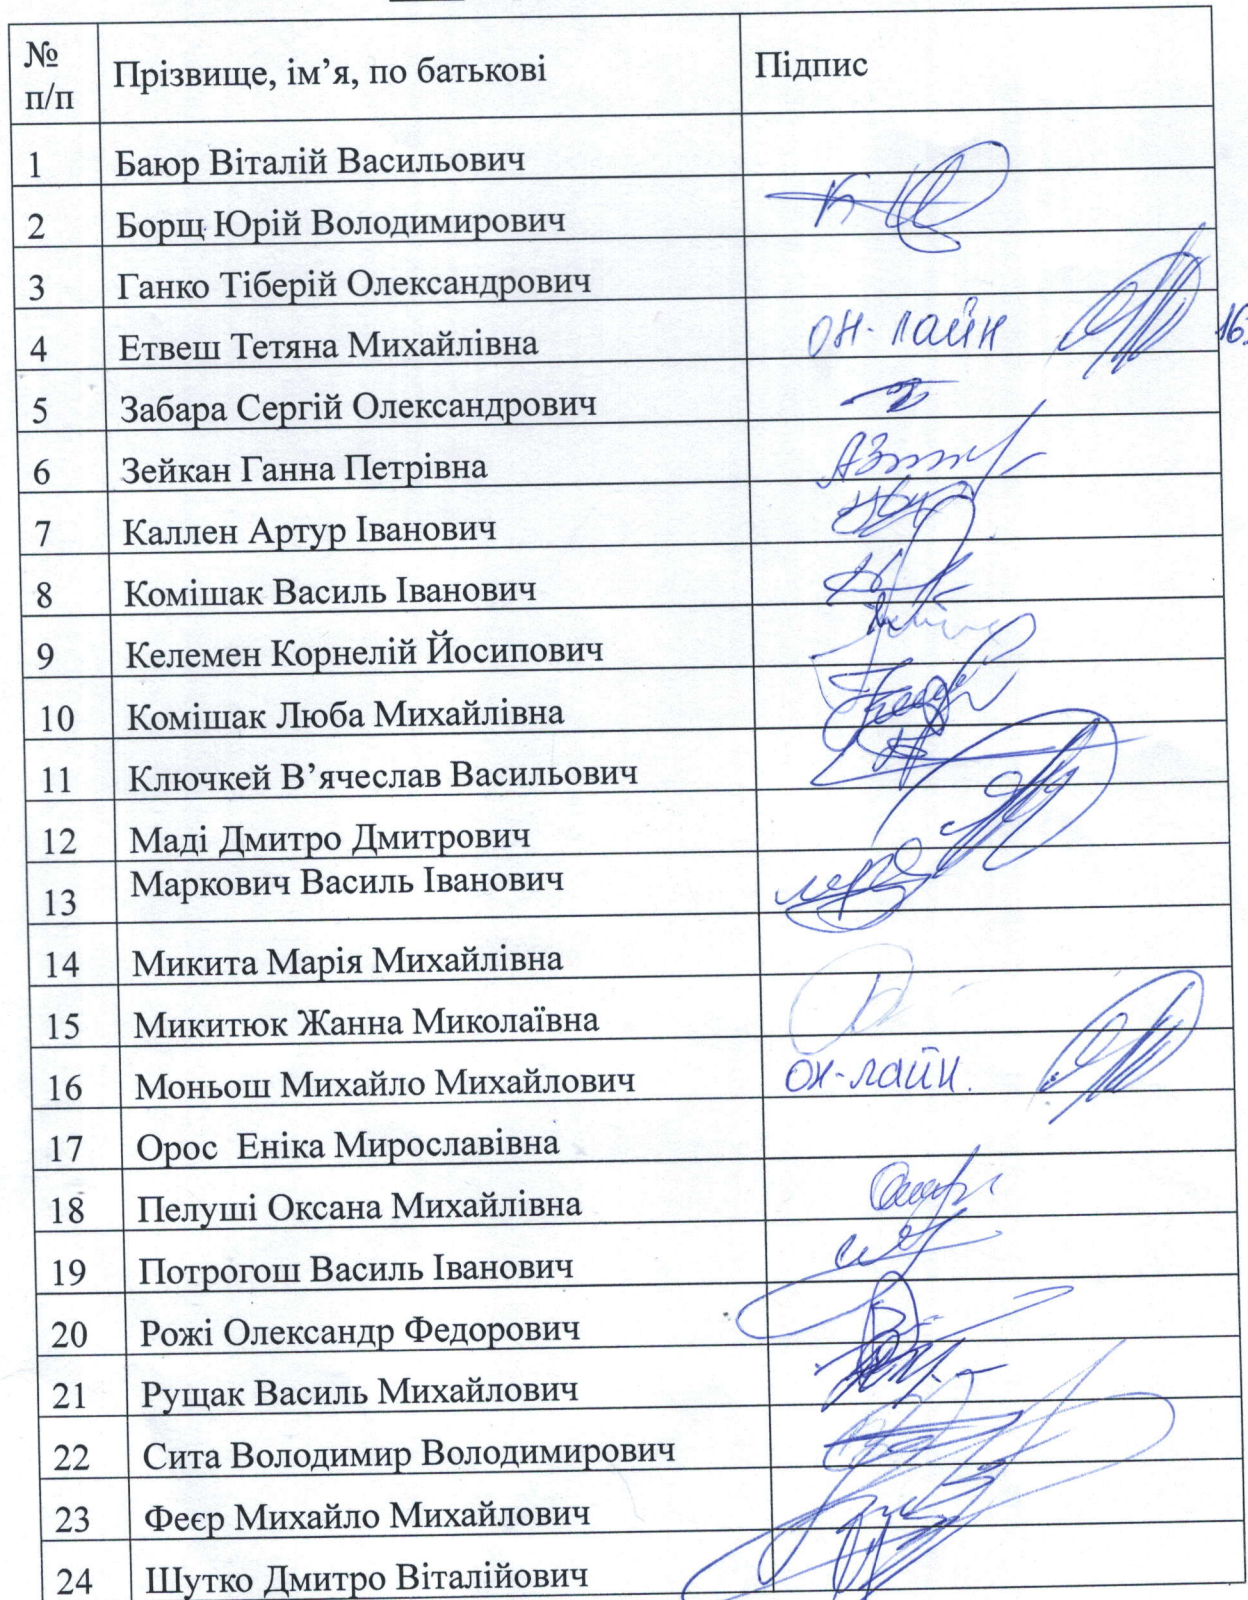 № п/п Прізвище, ім’я, по батькові Підпис
1 Баюр Віталій Васильович
2 Борщ Юрій Володимирович
3 Ганко Тіберій Олександрович
4 Етвеш Тетяна Михайлівна он-лайн
5 Забара Сергій Олександрович
6 Зейкан Ганна Петрівна
7 Каллен Артур Іванович
8 Комішак Василь Іванович
9 Келемен Корнелій Йосипович
10 Комішак Люба Михайлівна
11 Ключкей В’ячеслав Васильович
12 Маді Дмитро Дмитрович
13 Маркович Василь Іванович
14 Микита Марія Михайлівна
15 Микитюк Жанна Миколаївна
16 Моньош Михайло Михайлович он-лайн.
17 Орос Еніка Мирославівна
18 Пелуші Оксана Михайлівна
19 Потрогош Василь Іванович
20 Рожі Олександр Федорович
21 Рущак Василь Михайлович
22 Сита Володимир Володимирович
23 Феєр Михайло Михайлович
24 Шутко Дмитро Віталійович